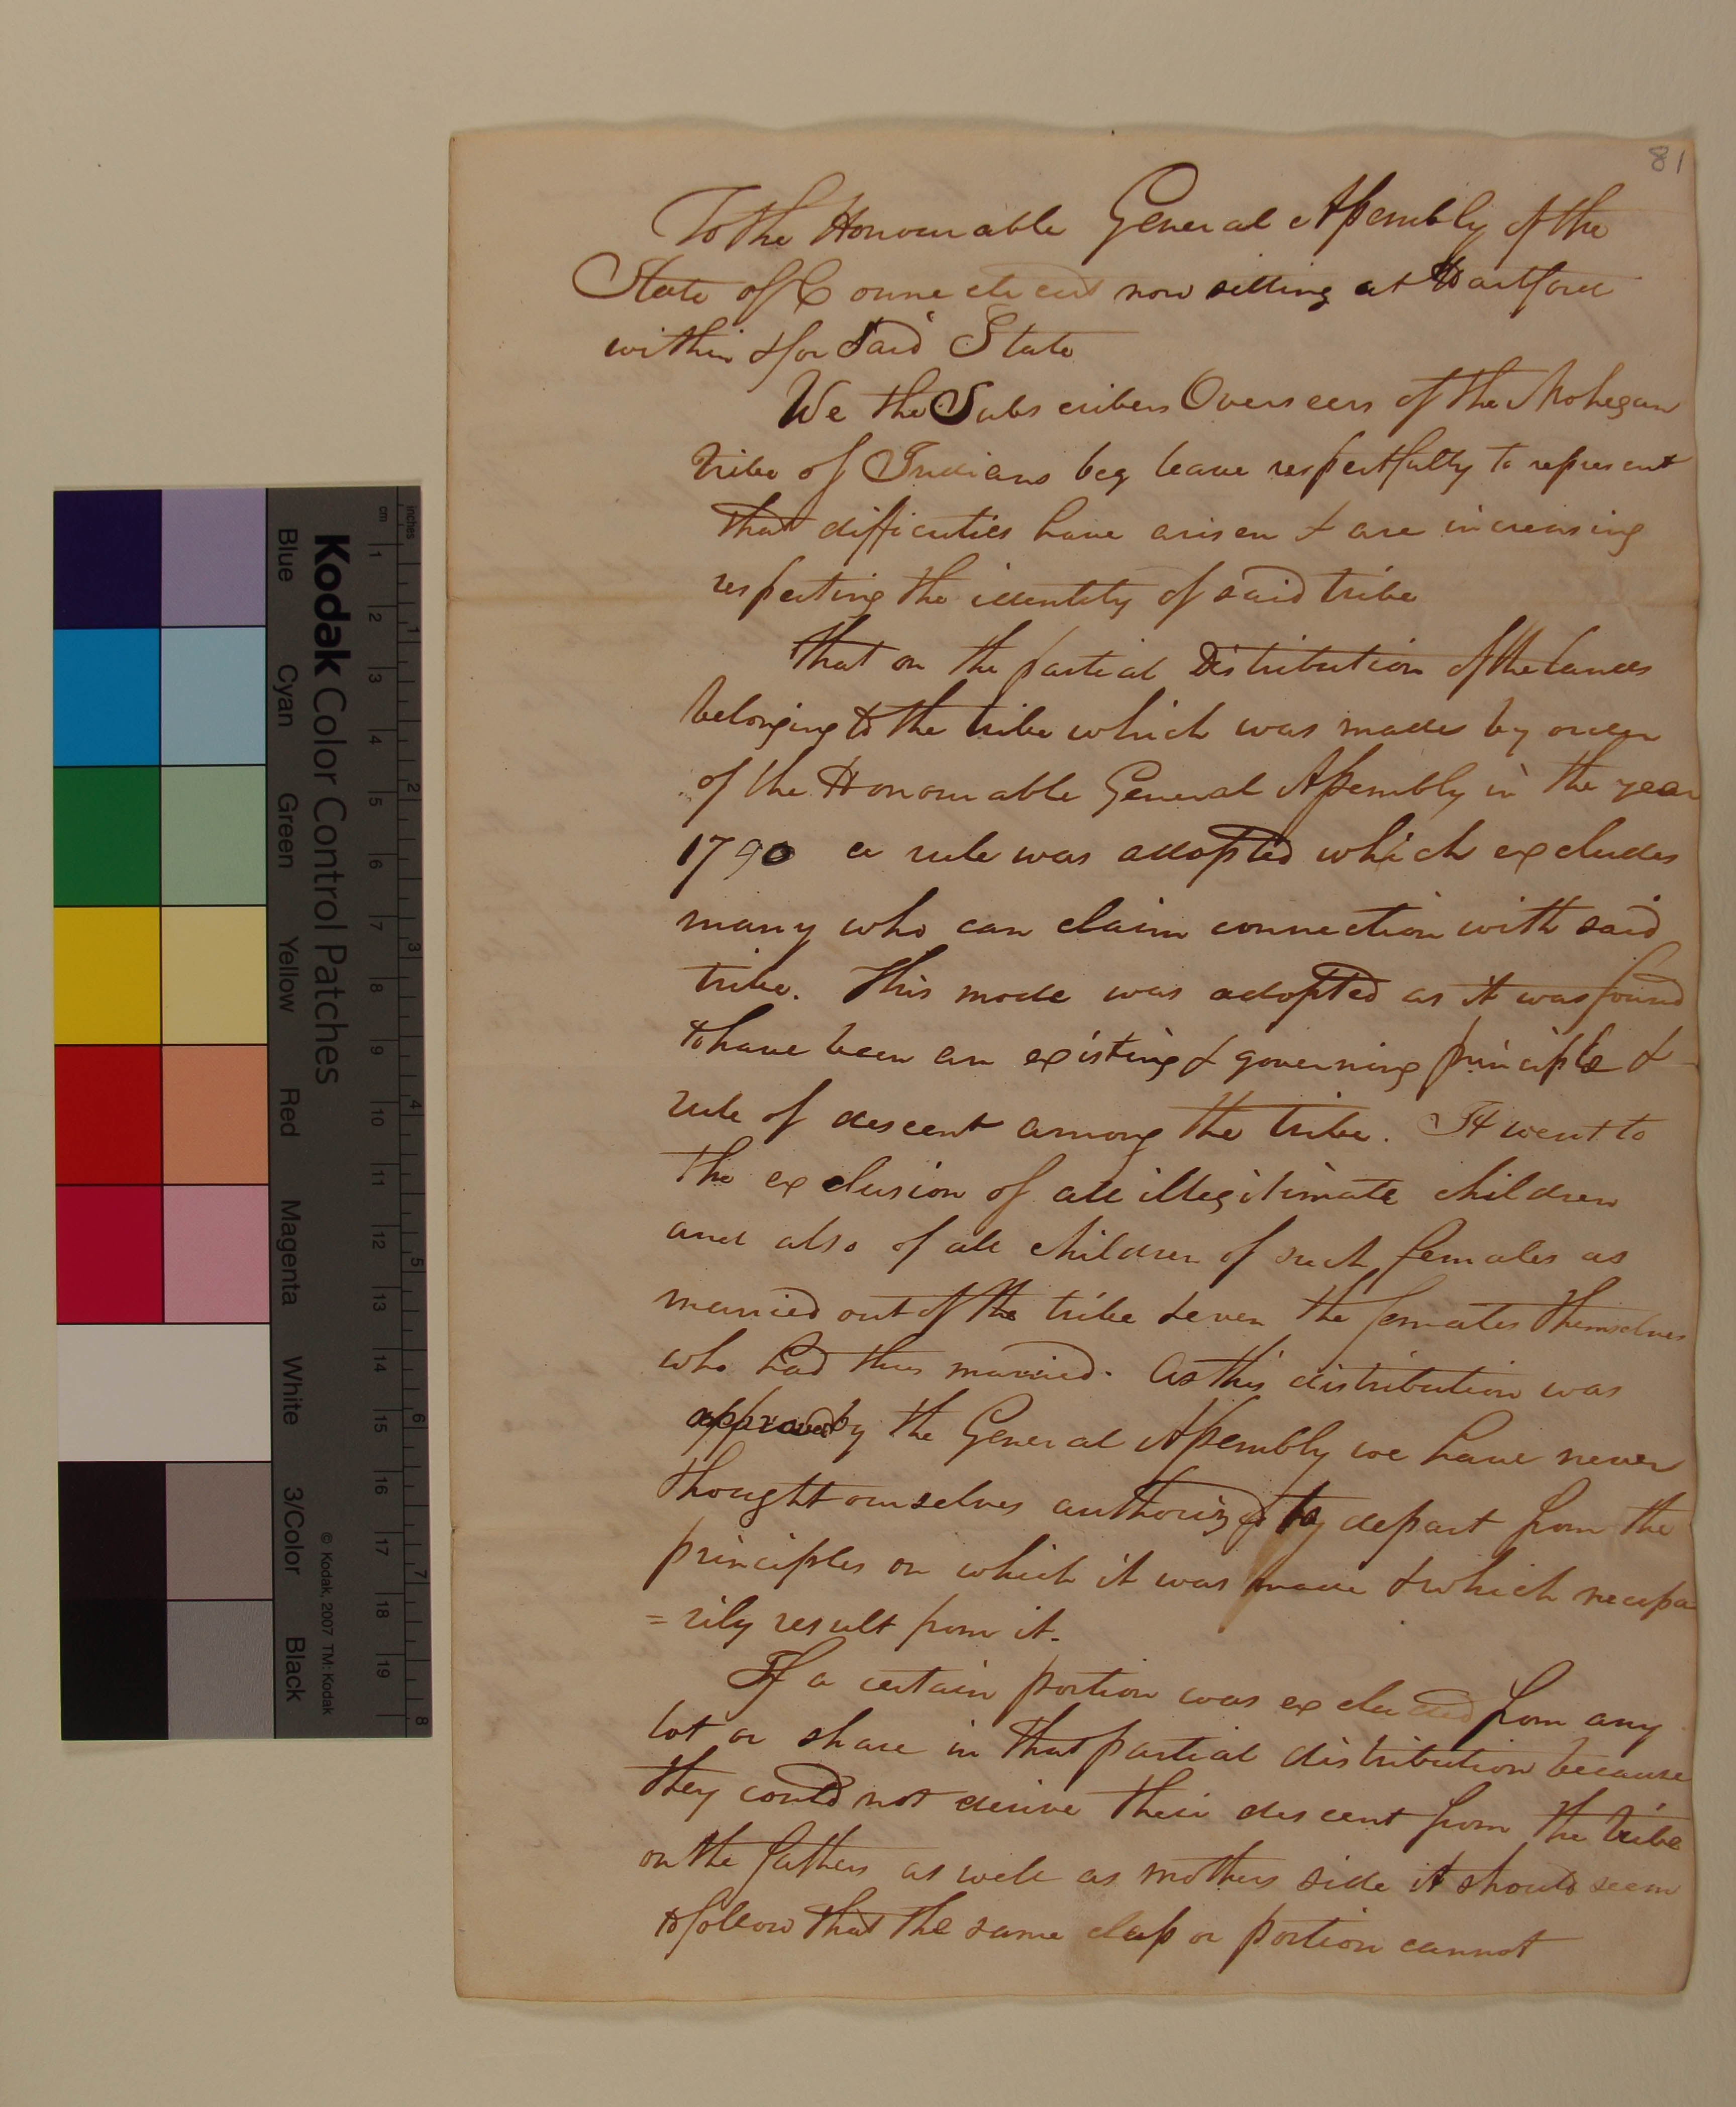 81
To the Honourable General Assembly of the
State of Connecticut now sitting at Hartford
within & for Said State
We the Subscribers Overseers of the Mohegan
tribe of Indians beg leave respectfully to represent
that difficulties have arisen & are increasing
respecting the identity of said tribe
that on the partial Distribution of the lands
belonging to the tribe which was made by order
of the Honourable General Assembly in the year
1790 a rule was adopted which excludes
many who can claim connection with said
tribe. This mode was adopted as it was found
to have been an existing & governing principle &
rule of descent among the tribe. It went to
the exclusion of all illegitimate children
and also of all children of such females as
married out of the tribe & even the females themselves
who had thus married. As this distribution was
approved by the General Assembly we have never
thought ourselves authorizd to depart from the
principles on which it was made & which necessa
=rily result from it.
If a certain portion was excluded from any
lot or share in that partial distribution because
they could not derive their descent from the tribe
on the fathers as well as mothers side it should seem
to follow that the same class or portion cannot
Kodak Color Control Patches
© Kodak, 2007 TM: Kodak
Blue Cyan Green Yellow Red Magenta White 3/Color Black
inches 1 2 3 4 5 6 7 8
cm 1 2 3 4 5 6 7 8 9 10 11 12 13 14 15 16 17 18 19